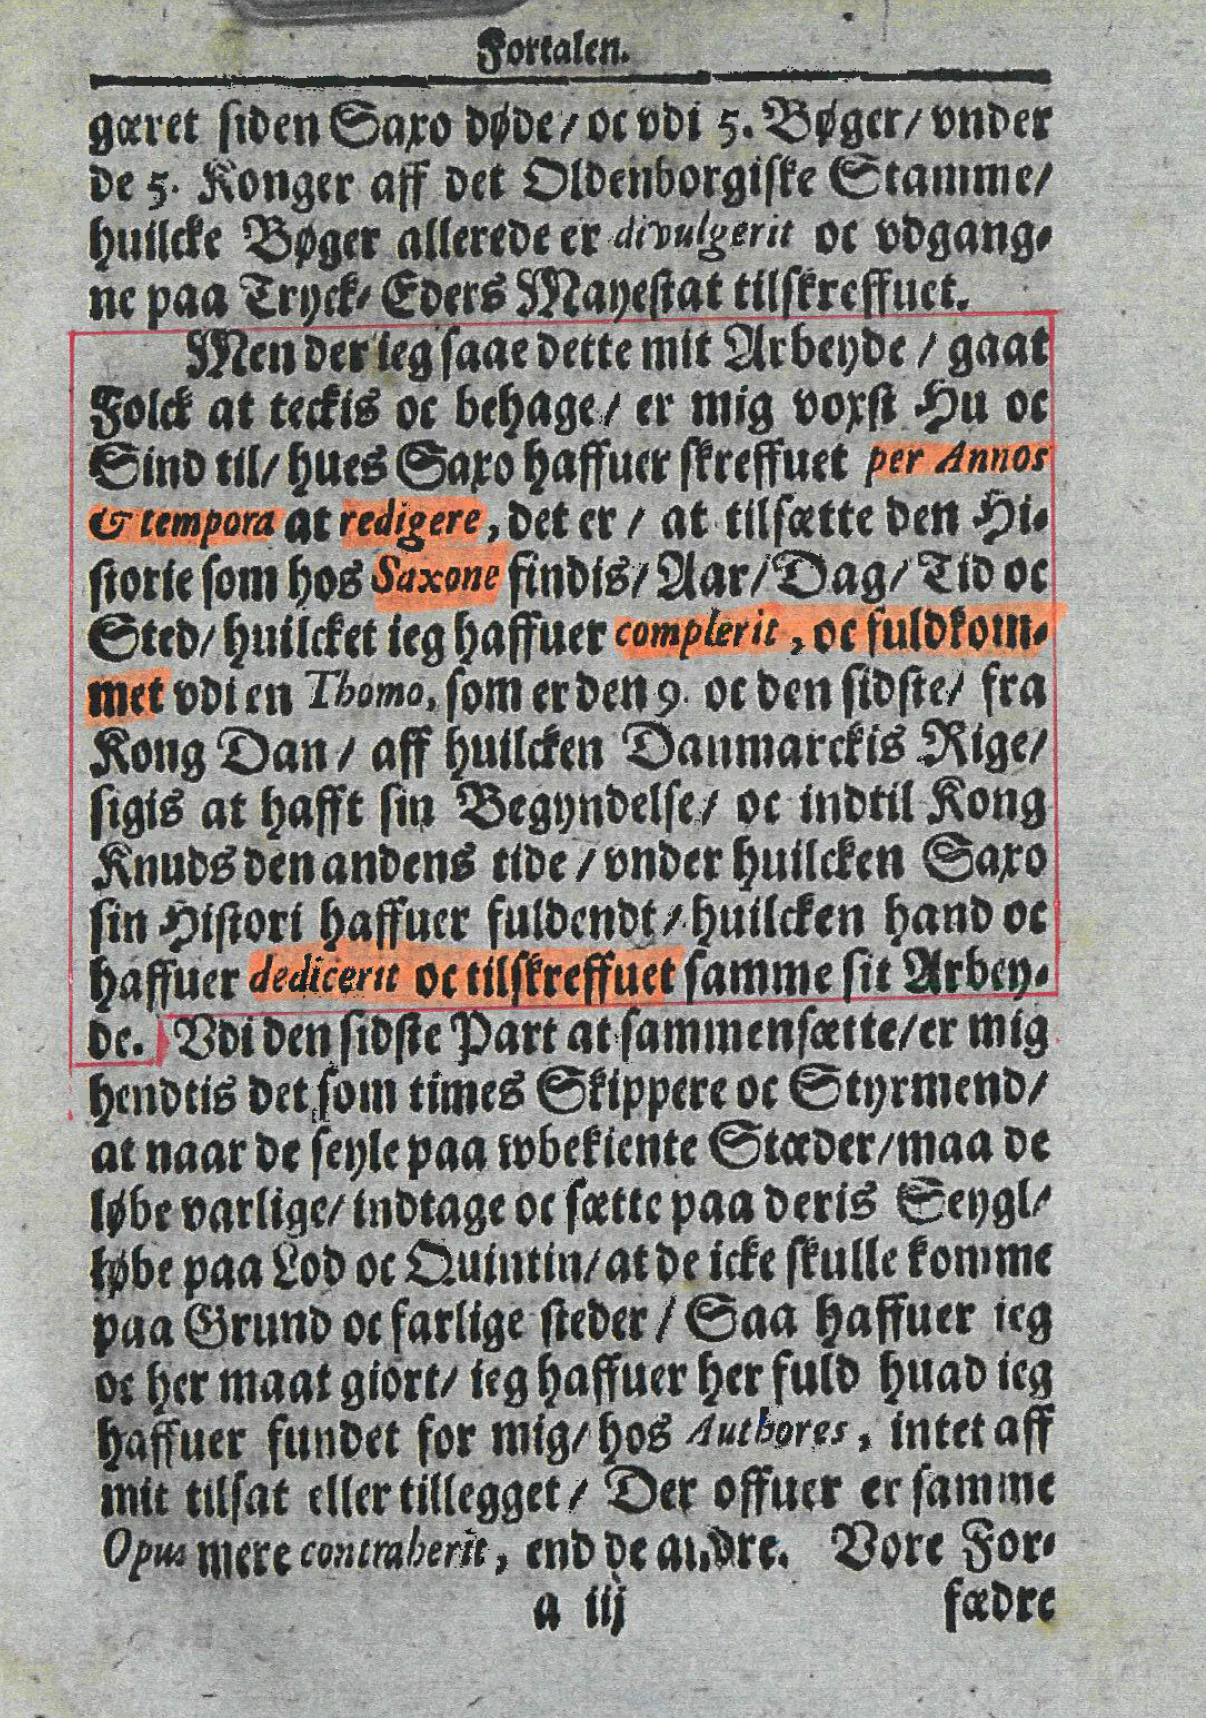 Fortalen.
gæret siden Saxo døde/ oc vdi 5. Bøger/ vnder
de 5. Konger aff det Oldenborgiske Stamme/
huilcke Bøger allerede er divulgerit oc vdgang-
ne paa Tryck/ Eders Mayestat tilskreffuet.
Men der ieg saae dette mit Arbeyde / gaat
Folck at teckis oc behage/ er mig voxst Hu oc
Sind til/ hues Saxo haffuer skreffuet per Annos
& tempora at redigere, det er / at tilsætte den Hi-
storie som hos Saxone findis/ Aar/ Dag/ Tid oc
Sted/ huilcket ieg haffuer complerit, oc fuldkom-
met vdi en Thomo, som er den 9. oc den sidste/ fra
Kong Dan / aff huilcken Danmarckis Rige/
sigis at hafft sin Begyndelse/ oc indtil Kong
Knuds den andens tide / vnder huilcken Saxo
sin Histori haffuer fuldendt / huilcken hand oc
haffuer dedicerit oc tilskreffuet samme sit Arbey-
de. Vdi den sidste Part at sammensætte/ er mig
hendtis det som times Skippere oc Styrmend/
at naar de seyle paa wbekiente Stæder/ maa de
løbe varlige/ indtage oc sætte paa deris Seygl/
løbe paa Lod oc Quintin/ at de icke skulle komme
paa Grund oc farlige steder / Saa haffuer ieg
oc her maat giort/ ieg haffuer her fuld huad ieg
haffuer fundet for mig/ hos Authores, intet aff
mit tilsat eller tillegget / Der offuer er samme
Opus mere contraherit, end de andre. Vore For-
a iij fædre